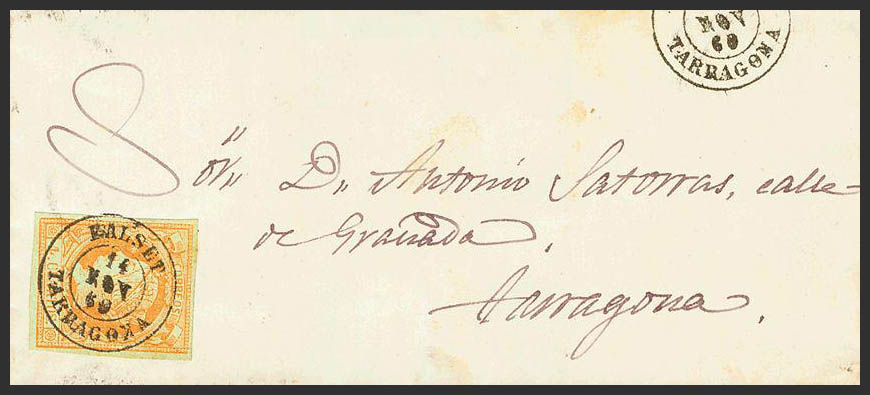 NOV
60
TARRAGONA
Sor D. Antonio Satorras, calle
de Granada,
Tarragona.
FALSET
14
NOV
60
TARRAGONA